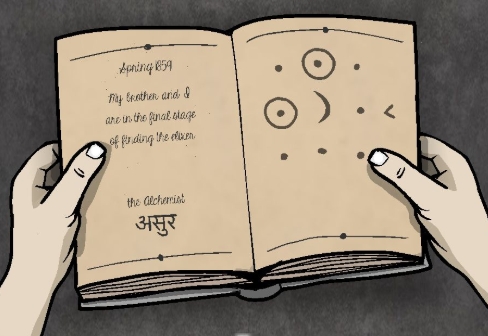 Spring 1859
My brother and I
are in the final stage
of finding the elixer
the Alchemist
असुर